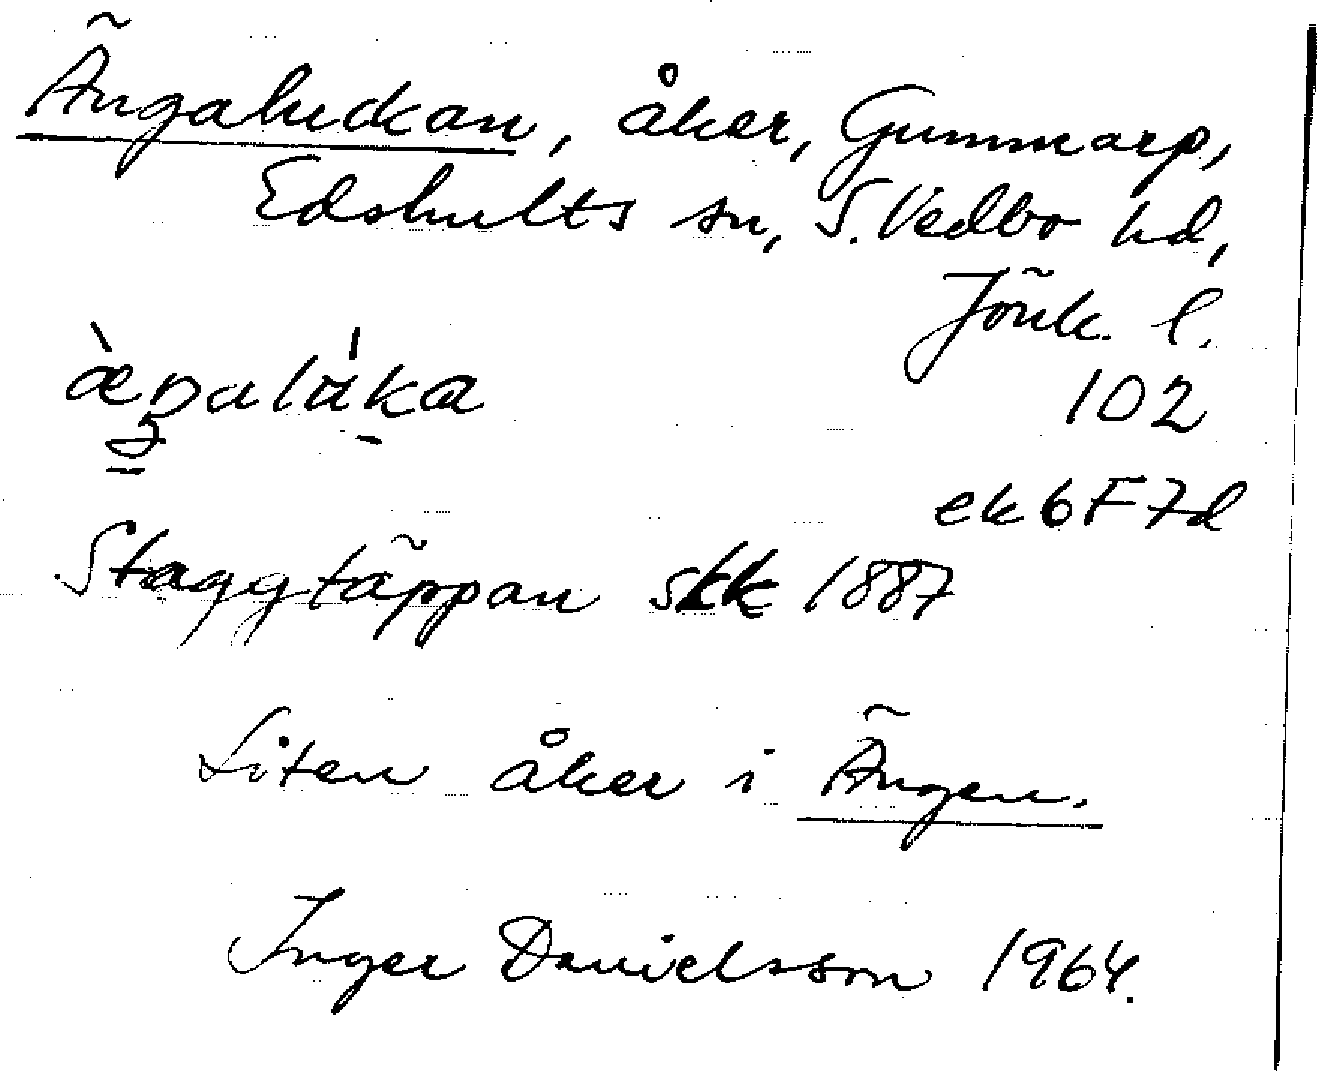 Ängaluckan, åker, Gummarp,
Edshults sn, S. Vedbo hd,
Jönk. l.
102
ek 6F7d
Staggtäppan skk 1887
Liten åker i Ängen.
Inger Danielsson 1964.